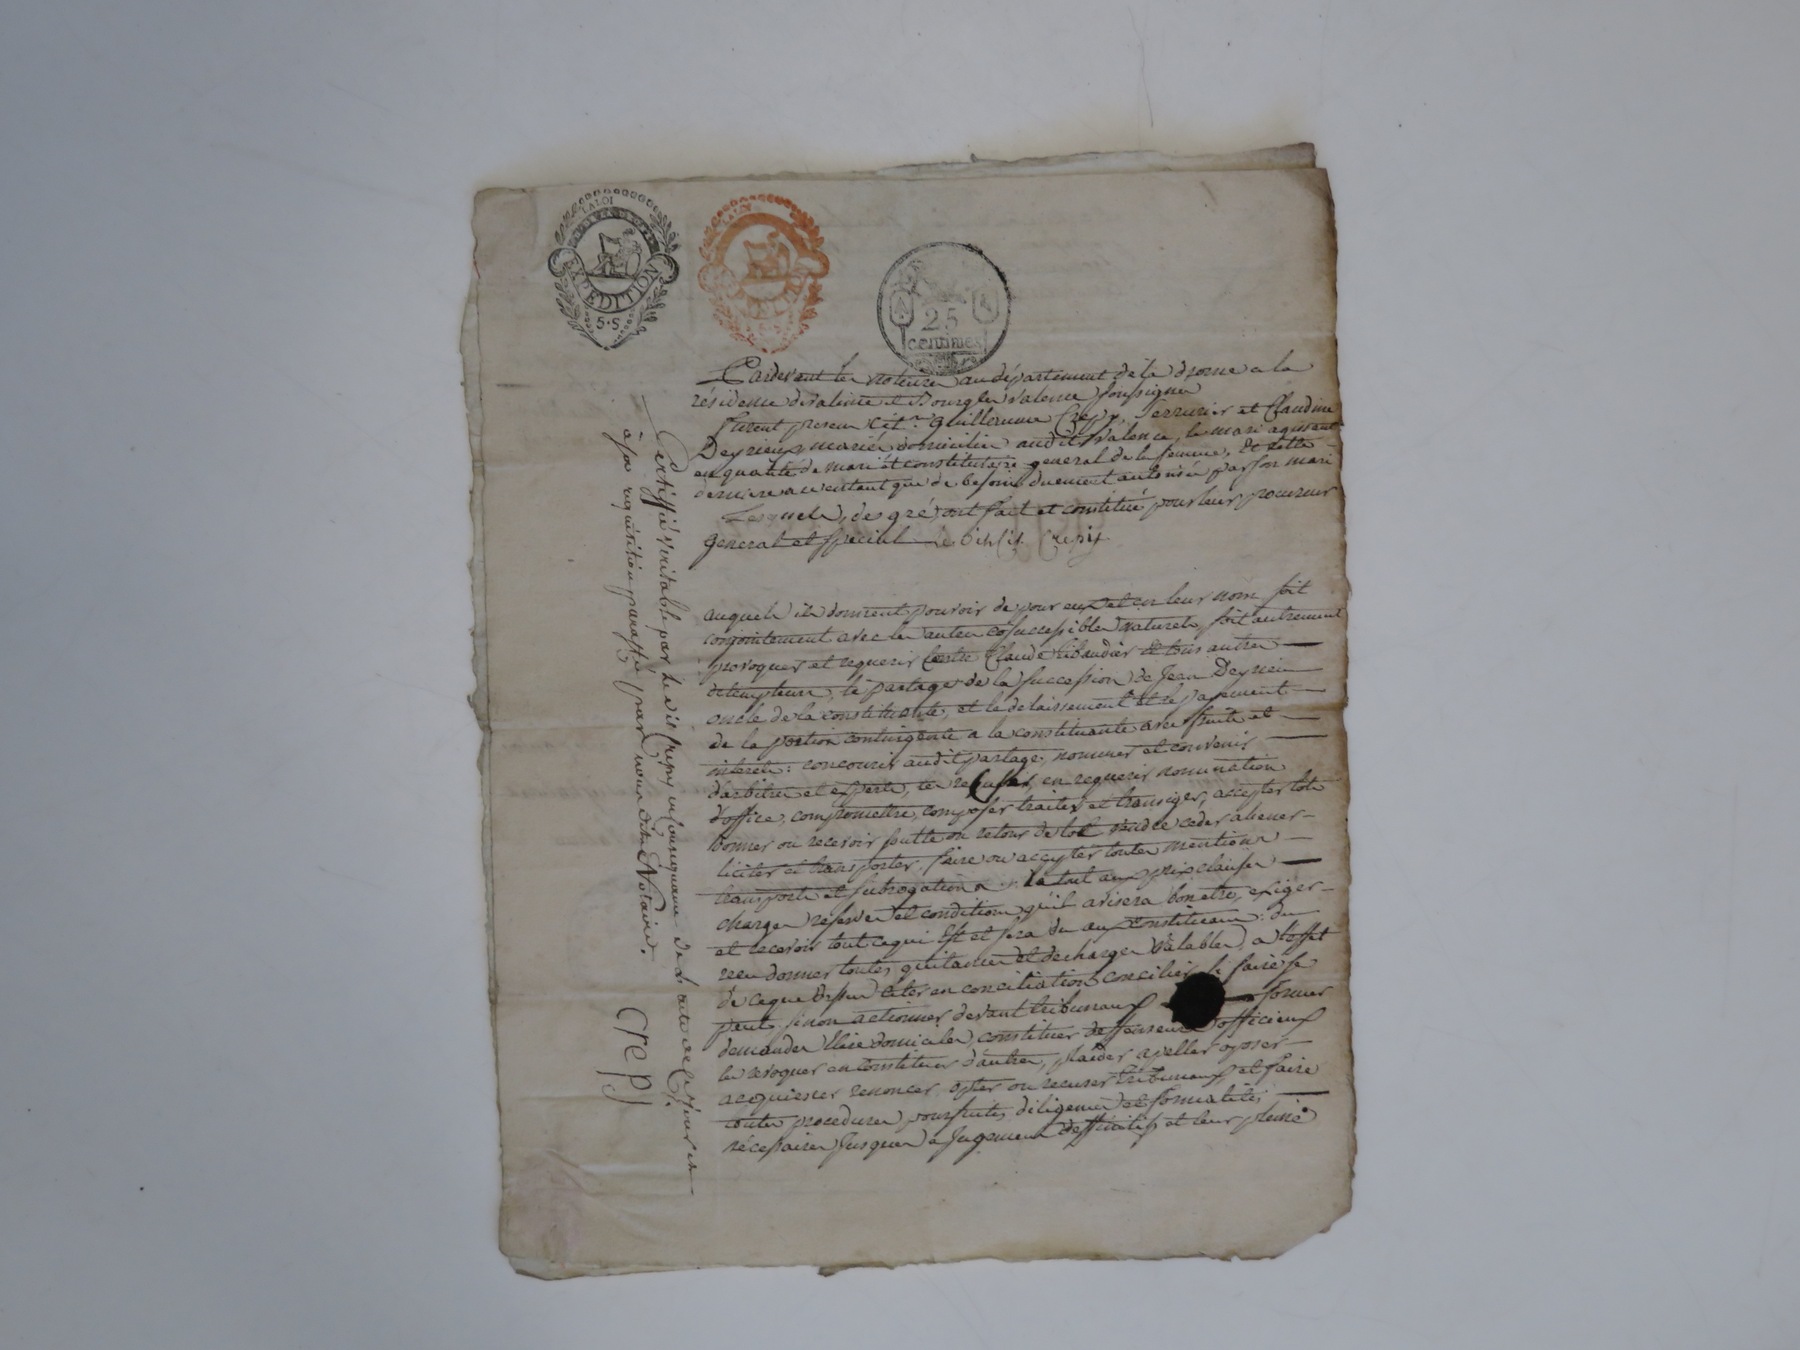 LA LOI
EXPEDITION
5·S
LA LOI
25
centimes
Pardevant les notaires au département de la drome a la
résidence de Valence et Bourg les valence soussignes
furent presens Cit.n Guillaume Crepy Serrurier et Claudine
Deyrieux mariés domiciliés audit Valence, le mari agissant
en qualité de mari et constitutaire general de sa femme, et cette
derniere en tant que de besoin duement autorisée par son mari
Lesquels, de gré, ont fait et constitué pour leur procureur
general et special
auquel ils donnent pouvoir de pour eux et en leur nom soit
conjointement avec les autres cosuccessibles naturels, soit autrement
provoquer et requerir contre Claude et tous autres
detempteurs, le partage de la succession de Jean Deyrieu
oncle de la constituante, et le delaissement et le payement
de la portion contingente a la constituante avec fruits et
interets: concourir audit partage, nommer et convenir
d'arbitres et experts, les recuser, en requerir nomination
d'office, compromettre, composer traiter et transiger, accepter lots
donner ou recevoir soulte ou retour de lot vendre ceder aliener
liciter et transporter, faire ou accepter toutes mentions
transports et subrogations le tout aux prix clauses
charges reserves et conditions qu'il avisera bon etre, exiger
et recevoir tout ce qui est et sera du aux constituans: du
recu donner toutes quitances et decharges valables, a l'effet
de ce que dessus citer en conciliation, concilier si faire se
peut, sinon actionner devant tribunaux former
demandes elire domiciles, constituer deffenseurs officieux
les revoquer en constituer d'autres, plaider apeller oposer
acquiescer renoncer opter ou recuser tribunaux et faire
toutes procedures poursuites, diligences et formalités
nécessaires jusques a jugement deffinitif et leur pleine
Certiffié véritable par
à sa requisition paraffé par nous dits Notaires.
Crepy